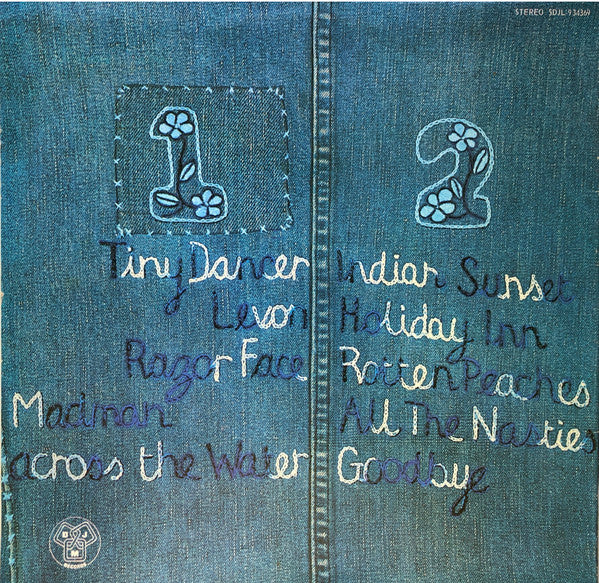 STEREO SDJL 934369
1
Tiny Dancer
Levon
Razor Face
Madman
across the Water
2
Indian Sunset
Holiday Inn
Rotten Peaches
All The Nasties
Goodbye
DJM
RECORDS